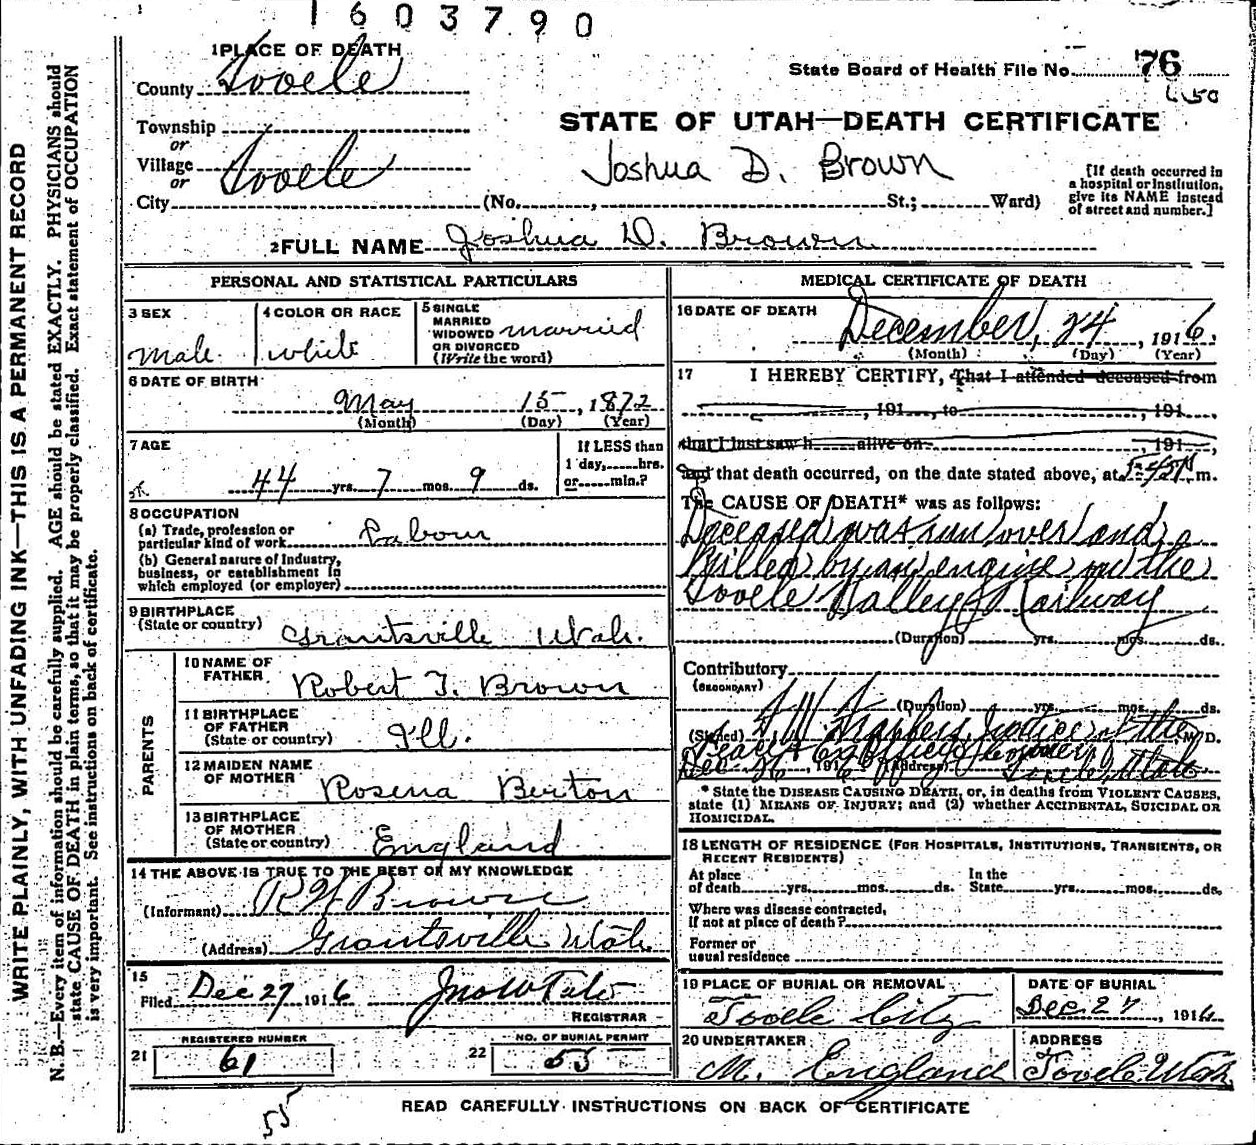 1603790
1 PLACE OF DEATH
County Tooele
State Board of Health File No. 76
Township
or
Village Tooele
or
City (No. , St.; Ward)
STATE OF UTAH—DEATH CERTIFICATE
Joshua D. Brown
[If death occurred in
a hospital or institution,
give its NAME instead
of street and number.]
2 FULL NAME Joshua D. Brown
PERSONAL AND STATISTICAL PARTICULARS
3 SEX
Male
4 COLOR OR RACE
white
5 SINGLE
MARRIED
WIDOWED
OR DIVORCED
(Write the word)
married
6 DATE OF BIRTH
May 15, 1872
(Month) (Day) (Year)
7 AGE
44 yrs. 7 mos. 9 ds.
If LESS than
1 day, hrs.
or min.?
8 OCCUPATION
(a) Trade, profession or
particular kind of work Labour
(b) General nature of Industry,
business, or establishment in
which employed (or employer)
9 BIRTHPLACE
(State or country) Grantsville Utah.
PARENTS
10 NAME OF
FATHER Robert T. Brown
11 BIRTHPLACE
OF FATHER
(State or country) Ill.
12 MAIDEN NAME
OF MOTHER Rosena Burton
13 BIRTHPLACE
OF MOTHER
(State or country) England
14 THE ABOVE IS TRUE TO THE BEST OF MY KNOWLEDGE
(Informant) R W Brown
(Address) Grantsville Utah
15
Filed Dec 27 1916
REGISTRAR
21 REGISTERED NUMBER
61
22 NO. OF BURIAL PERMIT
55
MEDICAL CERTIFICATE OF DEATH
16 DATE OF DEATH
December, 24, 1916.
(Month) (Day) (Year)
17 I HEREBY CERTIFY, That I attended deceased from
, 191 , to , 191 ,
that I last saw h alive on , 191 ,
and that death occurred, on the date stated above, at m.
The CAUSE OF DEATH* was as follows:
Deceased was run over and
Killed by an engine on the
Tooele Valley Railway
(Duration) yrs. mos. ds.
Contributory
(SECONDARY)
(Duration) yrs. mos. ds.
(Signed) Justice of the M. D.
Peace & Ex Officio Coroner
Dec 26, 1916 (Address) Tooele, Utah
* State the DISEASE CAUSING DEATH, or, in deaths from VIOLENT CAUSES,
state (1) MEANS OF INJURY; and (2) whether ACCIDENTAL, SUICIDAL OR
HOMICIDAL.
18 LENGTH OF RESIDENCE (FOR HOSPITALS, INSTITUTIONS, TRANSIENTS, OR
RECENT RESIDENTS)
At place In the
of death yrs. mos. ds. State yrs. mos. ds.
Where was disease contracted,
if not at place of death?
Former or
usual residence
19 PLACE OF BURIAL OR REMOVAL
Tooele City
DATE OF BURIAL
Dec. 27, 1916
20 UNDERTAKER
M. England
ADDRESS
Tooele. Utah
READ CAREFULLY INSTRUCTIONS ON BACK OF CERTIFICATE
55
WRITE PLAINLY, WITH UNFADING INK—THIS IS A PERMANENT RECORD
N. B.—Every item of information should be carefully supplied. AGE should be stated EXACTLY. PHYSICIANS should
state CAUSE OF DEATH in plain terms, so that it may be properly classified. Exact statement of OCCUPATION
is very important. See instructions on back of certificate.